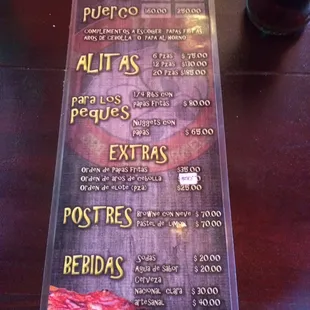 Puerco $160.00 $250.00
Complementos a escoger: Papas fritas
Aros de cebolla o papa al horno
Alitas 6 Pzas $75.00
12 Pzas $130.00
20 Pzas $195.00
Para los Peques 1/4 Ribs con
Papas fritas $80.00
Nuggets con
papas $65.00
Extras
Orden de Papas Fritas $35.00
Orden de aros de cebolla
Orden de elote (pza) $25.00
Postres Browne con nieve $70.00
Pastel de limon $70.00
Bebidas Sodas $20.00
Agua de Sabor $20.00
Cerveza
Nacional Clara $30.00
artesanal $40.00